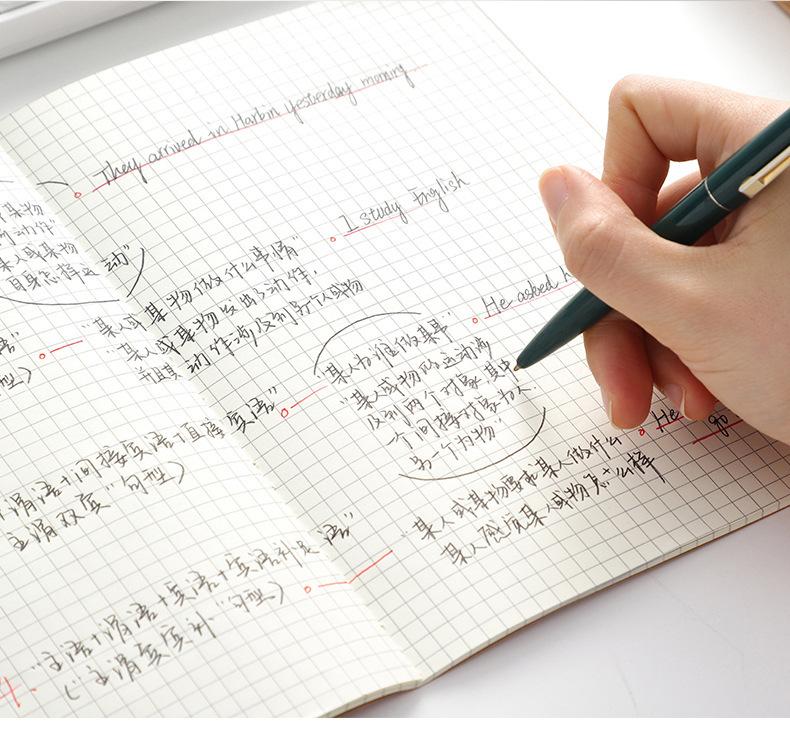 They arrived in Harbin yesterday morning
某物
动作"
某人或某物
自身怎样运动"
I study English
"某人或某物做什么事情"
"某人或某物发出动作,
并且其动作涉及到另个人或物
型)
He asked h
某人为谁做某事"
"某人或物的运动涉
及到两个对象,其中
一个间接对象为人,
另一个为物"
谓语+间接宾语+直接宾语"
主谓双宾"句型)
He
go
"某人或某物要求某人做什么
某人感觉某人或物怎么样
4. "主语+谓语+宾语+宾语补足语"
("主谓宾宾补"句型)